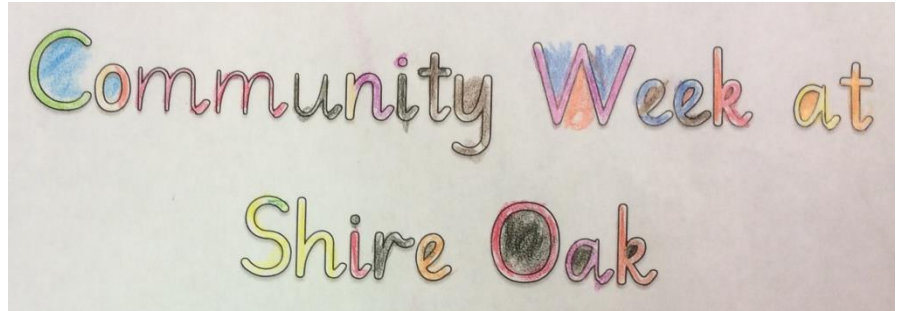 Community Week at
Shire Oak